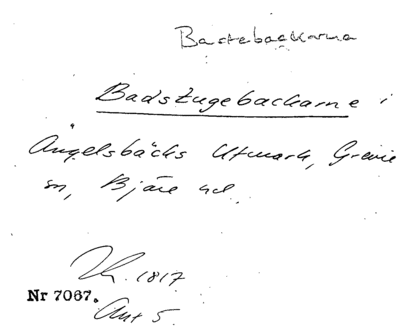 Bastebackarna
Badstugebackarne i
Ängelsbäcks Utmark, Grevie
sn, Bjäre hd.
1817
Nr 7067.
Akt 5.